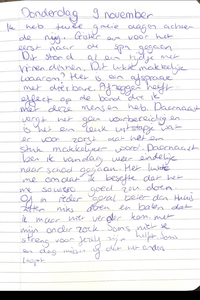 Donderdag 9 november
Ik heb twee goeie dagen achter
de rug. Gister en voor het
eerst naar de gegaan
Dit stond al een tijdje met
vrienden. Dit lukte makkelijk
waarom? Het is een afspraak
met dierbare. Afzeggen heeft
effect op de band die ik
met deze mensen heb. Daarnaast
vergt het geen voorbereiding en
is het een leuk uitstapje wat
er voor zorgt dat het een
stuk makkelijker word. Daarnaast
ben ik vandaag weer eindelijk
naar school gegaan. Het lukte
me omdat ik besefte dat het
me sowieso goed zou doen.
Of in ieder geval beter dan thuis
zitten niks doen en balen dat
ik maar niet verder kom met
mijn onderzoek. Soms niet te
streng voor jezelf zijn helpt. Soms
een dag